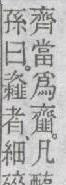 齊當爲齏。凡
孫曰。者細